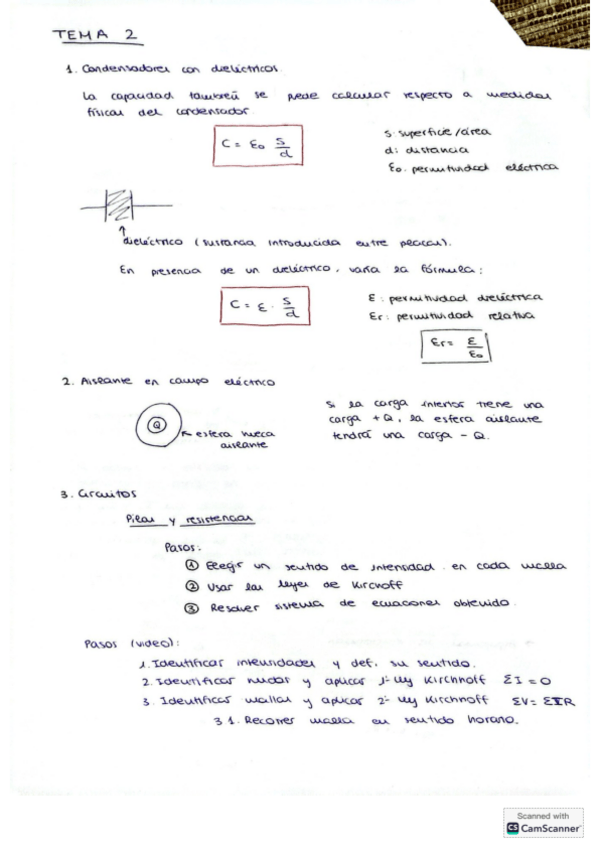 TEMA 2
1. Condensadores con dieléctricos.
La capacidad también se pede calcular respecto a medidas
físicas del condensador.
C = ε₀ S/d
S: superficie/área
d: distancia
ε₀: permitividad eléctrica
dieléctrico (sustancia introducida entre placas).
En presencia de un dieléctrico, varía la fórmula:
C = ε · S/d
ε: permitividad dieléctrica
εr: permitividad relativa
εr = ε/ε₀
2. Aislante en campo eléctrico
Q
esfera hueca
aislante
Si la carga interior tiene una
carga +Q, la esfera aislante
tendrá una carga -Q.
3. Circuitos
Pilas y resistencias
Pasos:
① Elegir un sentido de intensidad en cada malla
② Usar las leyes de Kirchoff
③ Resolver sistema de ecuaciones obtenido.
Pasos (video):
1. Identificar intensidades y def. su sentido.
2. Identificar nudos y aplicar 1ª ley Kirchhoff ΣI = 0
3. Identificar mallas y aplicar 2ª ley Kirchhoff ΣV = ΣIR
3.1. Recorrer malla en sentido horario.
Scanned with
CS CamScanner